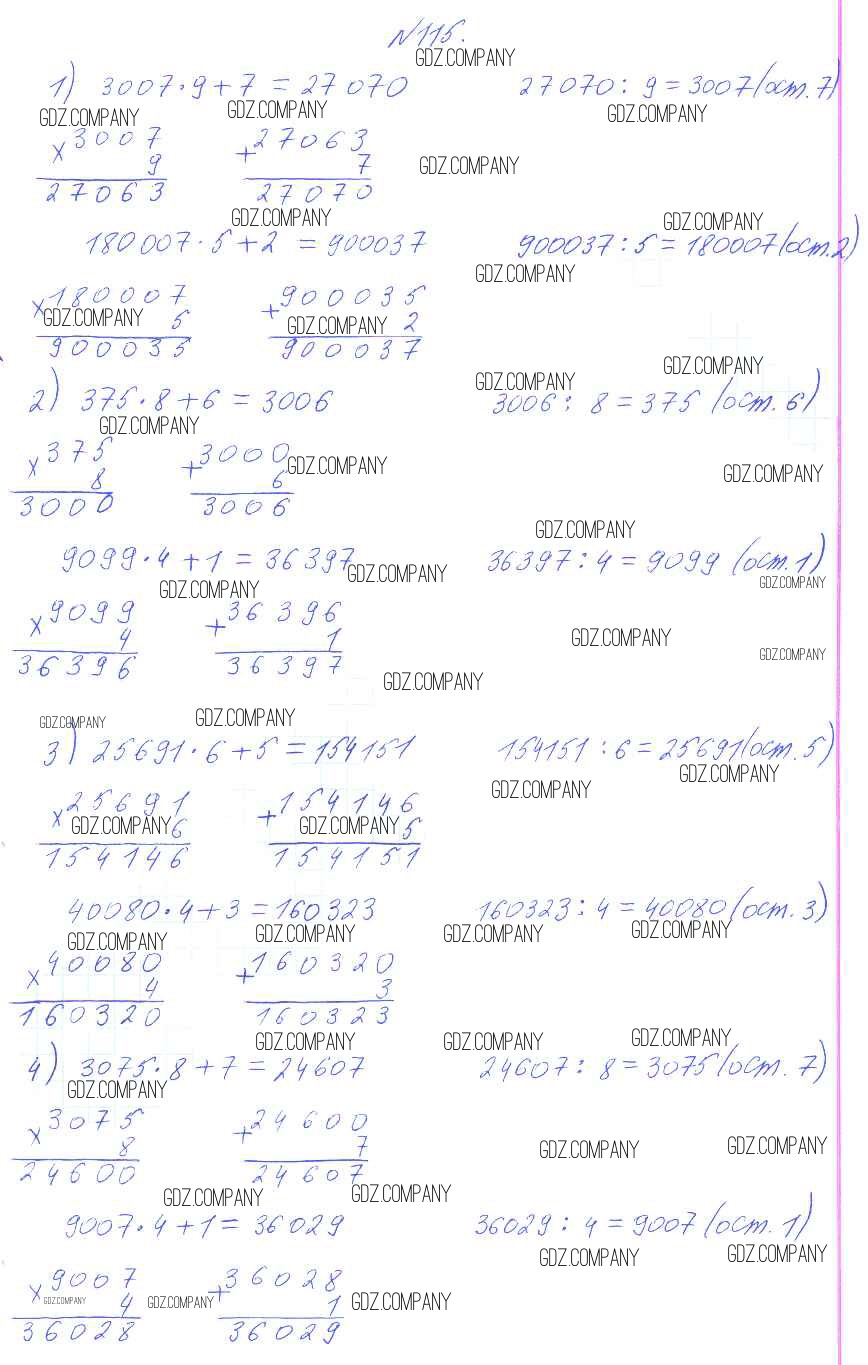 №115.
GDZ.COMPANY
1) 3007·9+7=27070 27070:9=3007(ост.7)
GDZ.COMPANY GDZ.COMPANY GDZ.COMPANY
×3007 +27063
9 7 GDZ.COMPANY
27063 27070
GDZ.COMPANY GDZ.COMPANY
180007·5+2=900037 900037:5=180007(ост.2)
GDZ.COMPANY
×180007 +900035
GDZ.COMPANY 5 GDZ.COMPANY 2
900035 900037
GDZ.COMPANY GDZ.COMPANY
2) 375·8+6=3006 3006:8=375(ост.6)
GDZ.COMPANY
×375 +3000
8 6 GDZ.COMPANY GDZ.COMPANY
3000 3006
GDZ.COMPANY
9099·4+1=36397 36397:4=9099(ост.1)
GDZ.COMPANY GDZ.COMPANY GDZ.COMPANY
×9099 +36396
4 1 GDZ.COMPANY
36396 36397 GDZ.COMPANY
GDZ.COMPANY
GDZ.COMPANY GDZ.COMPANY
3) 25691·6+5=154151 154151:6=25691(ост.5)
GDZ.COMPANY GDZ.COMPANY
×25691 +154146
GDZ.COMPANY 6 GDZ.COMPANY 5
154146 154151
40080·4+3=160323 160323:4=40080(ост.3)
GDZ.COMPANY GDZ.COMPANY GDZ.COMPANY GDZ.COMPANY
×40080 +160320
4 3
160320 160323
GDZ.COMPANY GDZ.COMPANY GDZ.COMPANY
4) 3075·8+7=24607 24607:8=3075(ост.7)
GDZ.COMPANY
×3075 +24600
8 7 GDZ.COMPANY GDZ.COMPANY
24600 24607
GDZ.COMPANY GDZ.COMPANY
9007·4+1=36029 36029:4=9007(ост.1)
GDZ.COMPANY GDZ.COMPANY
×9007 +36028
GDZ.COMPANY 4 GDZ.COMPANY 1 GDZ.COMPANY
36028 36029